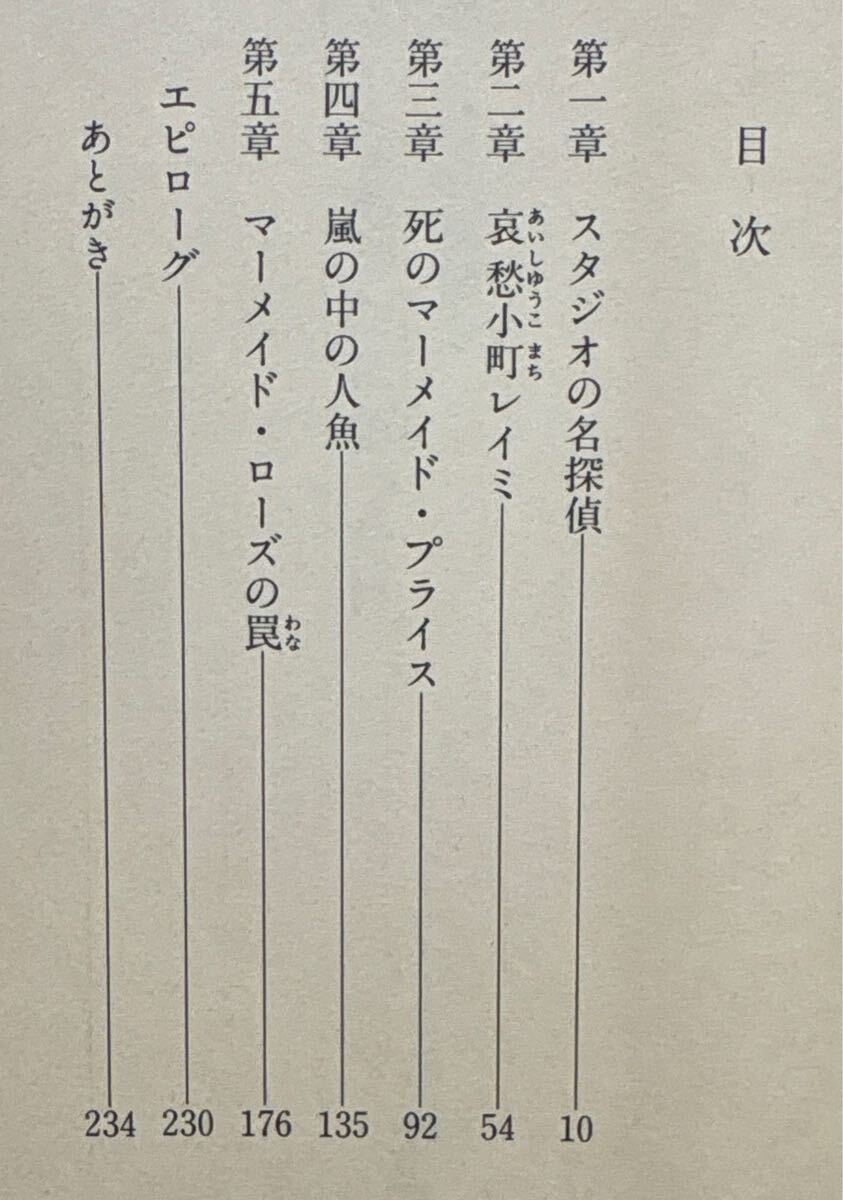 目次
第一章 スタジオの名探偵 10
第二章 哀愁小町レイミ 54
あいしゆうこまち
第三章 死のマーメイド・プライス 92
第四章 嵐の中の人魚 135
第五章 マーメイド・ローズの罠 176
わな
エピローグ 230
あとがき 234